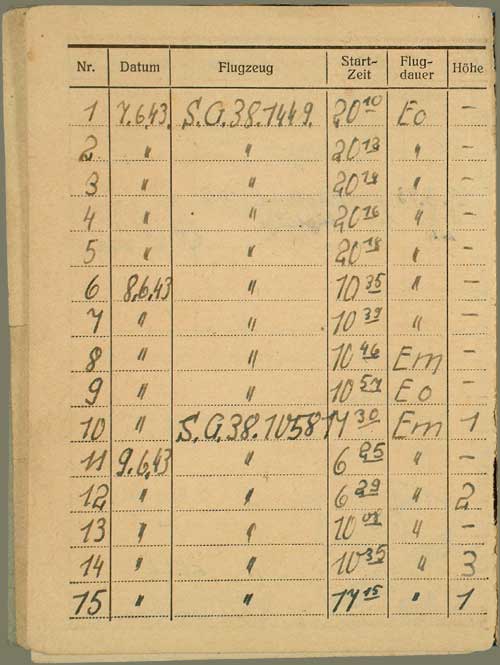 Nr. Datum Flugzeug Start-Zeit Flug-dauer Höhe
1 7.6.43. S.G.38.1449. 20 10 Eo –
2 " " 20 12 " –
3 " " 20 14 " –
4 " " 20 16 " –
5 " " 20 18 " –
6 8.6.43 " 10 35 " –
7 " " 10 39 " –
8 " " 10 46 Em –
9 " " 10 57 Eo –
10 " S.G.38.1058 17 30 Em 1
11 9.6.43 " 6 25 " –
12 " " 6 29 " 2
13 " " 10 " –
14 " " 10 35 " 3
15 " " 17 15 " 1